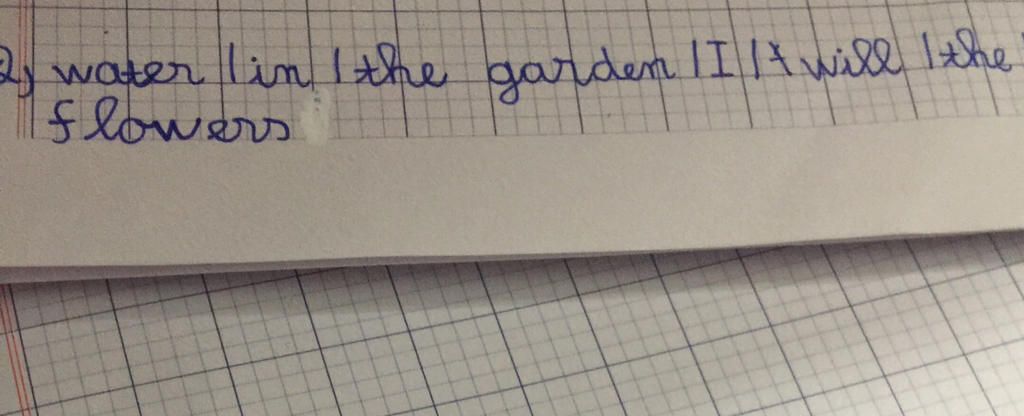 2) water / in / the garden / I / t will / the
flowers